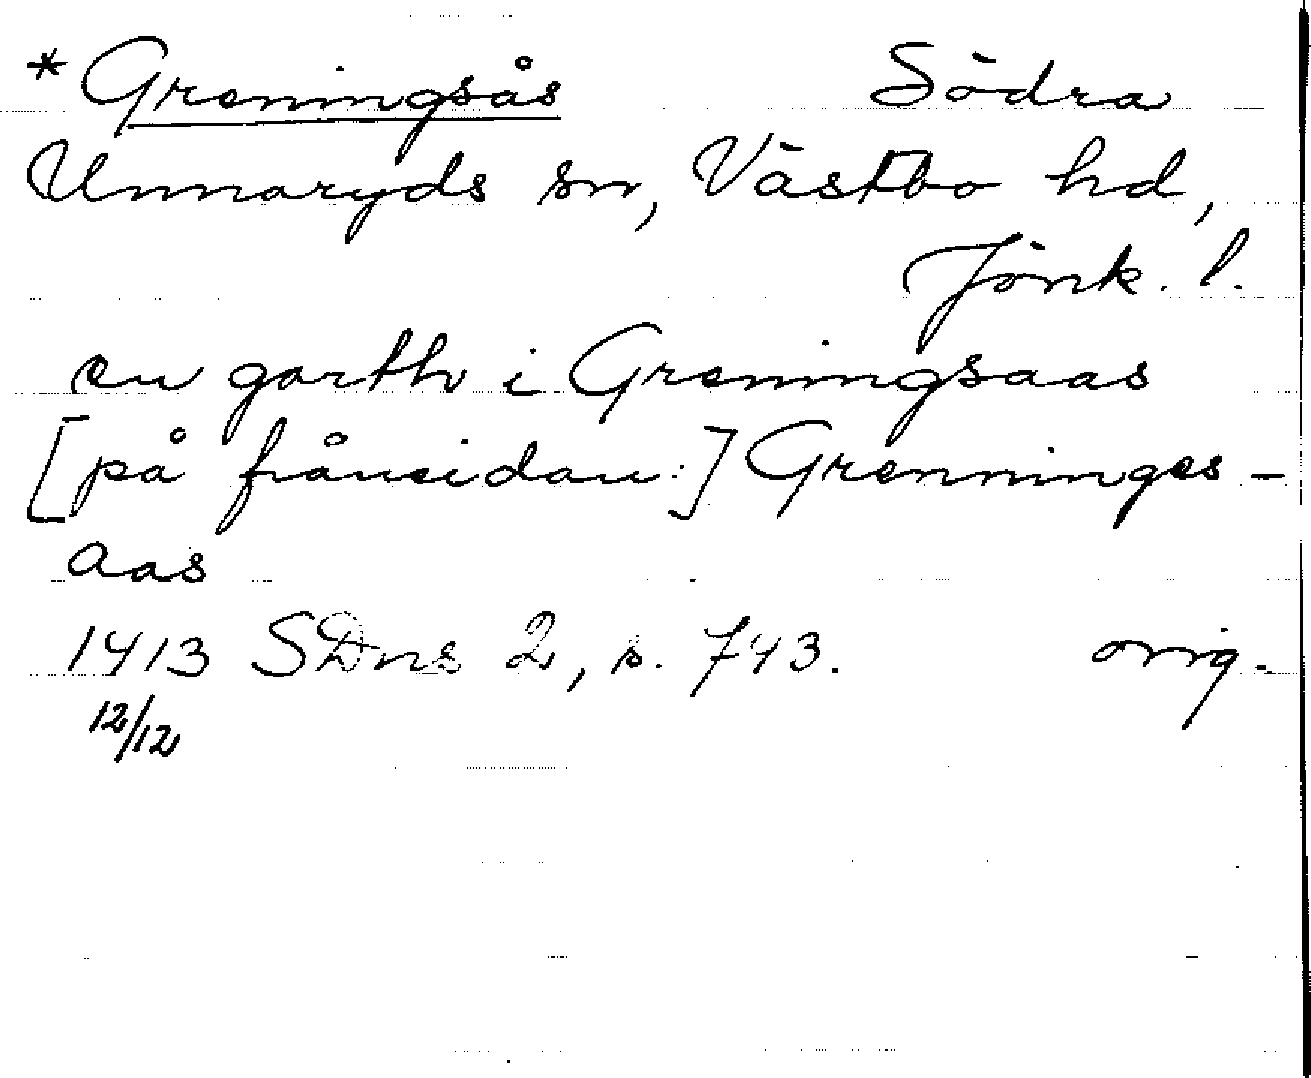 *Greningsås Södra
Unnaryds sn, Västbo hd,
Jönk. l.
en garth i Greningsaas
[på frånsidan:] Grenninges-
aas
1413 SDns 2, s. 743. orig.
12/12